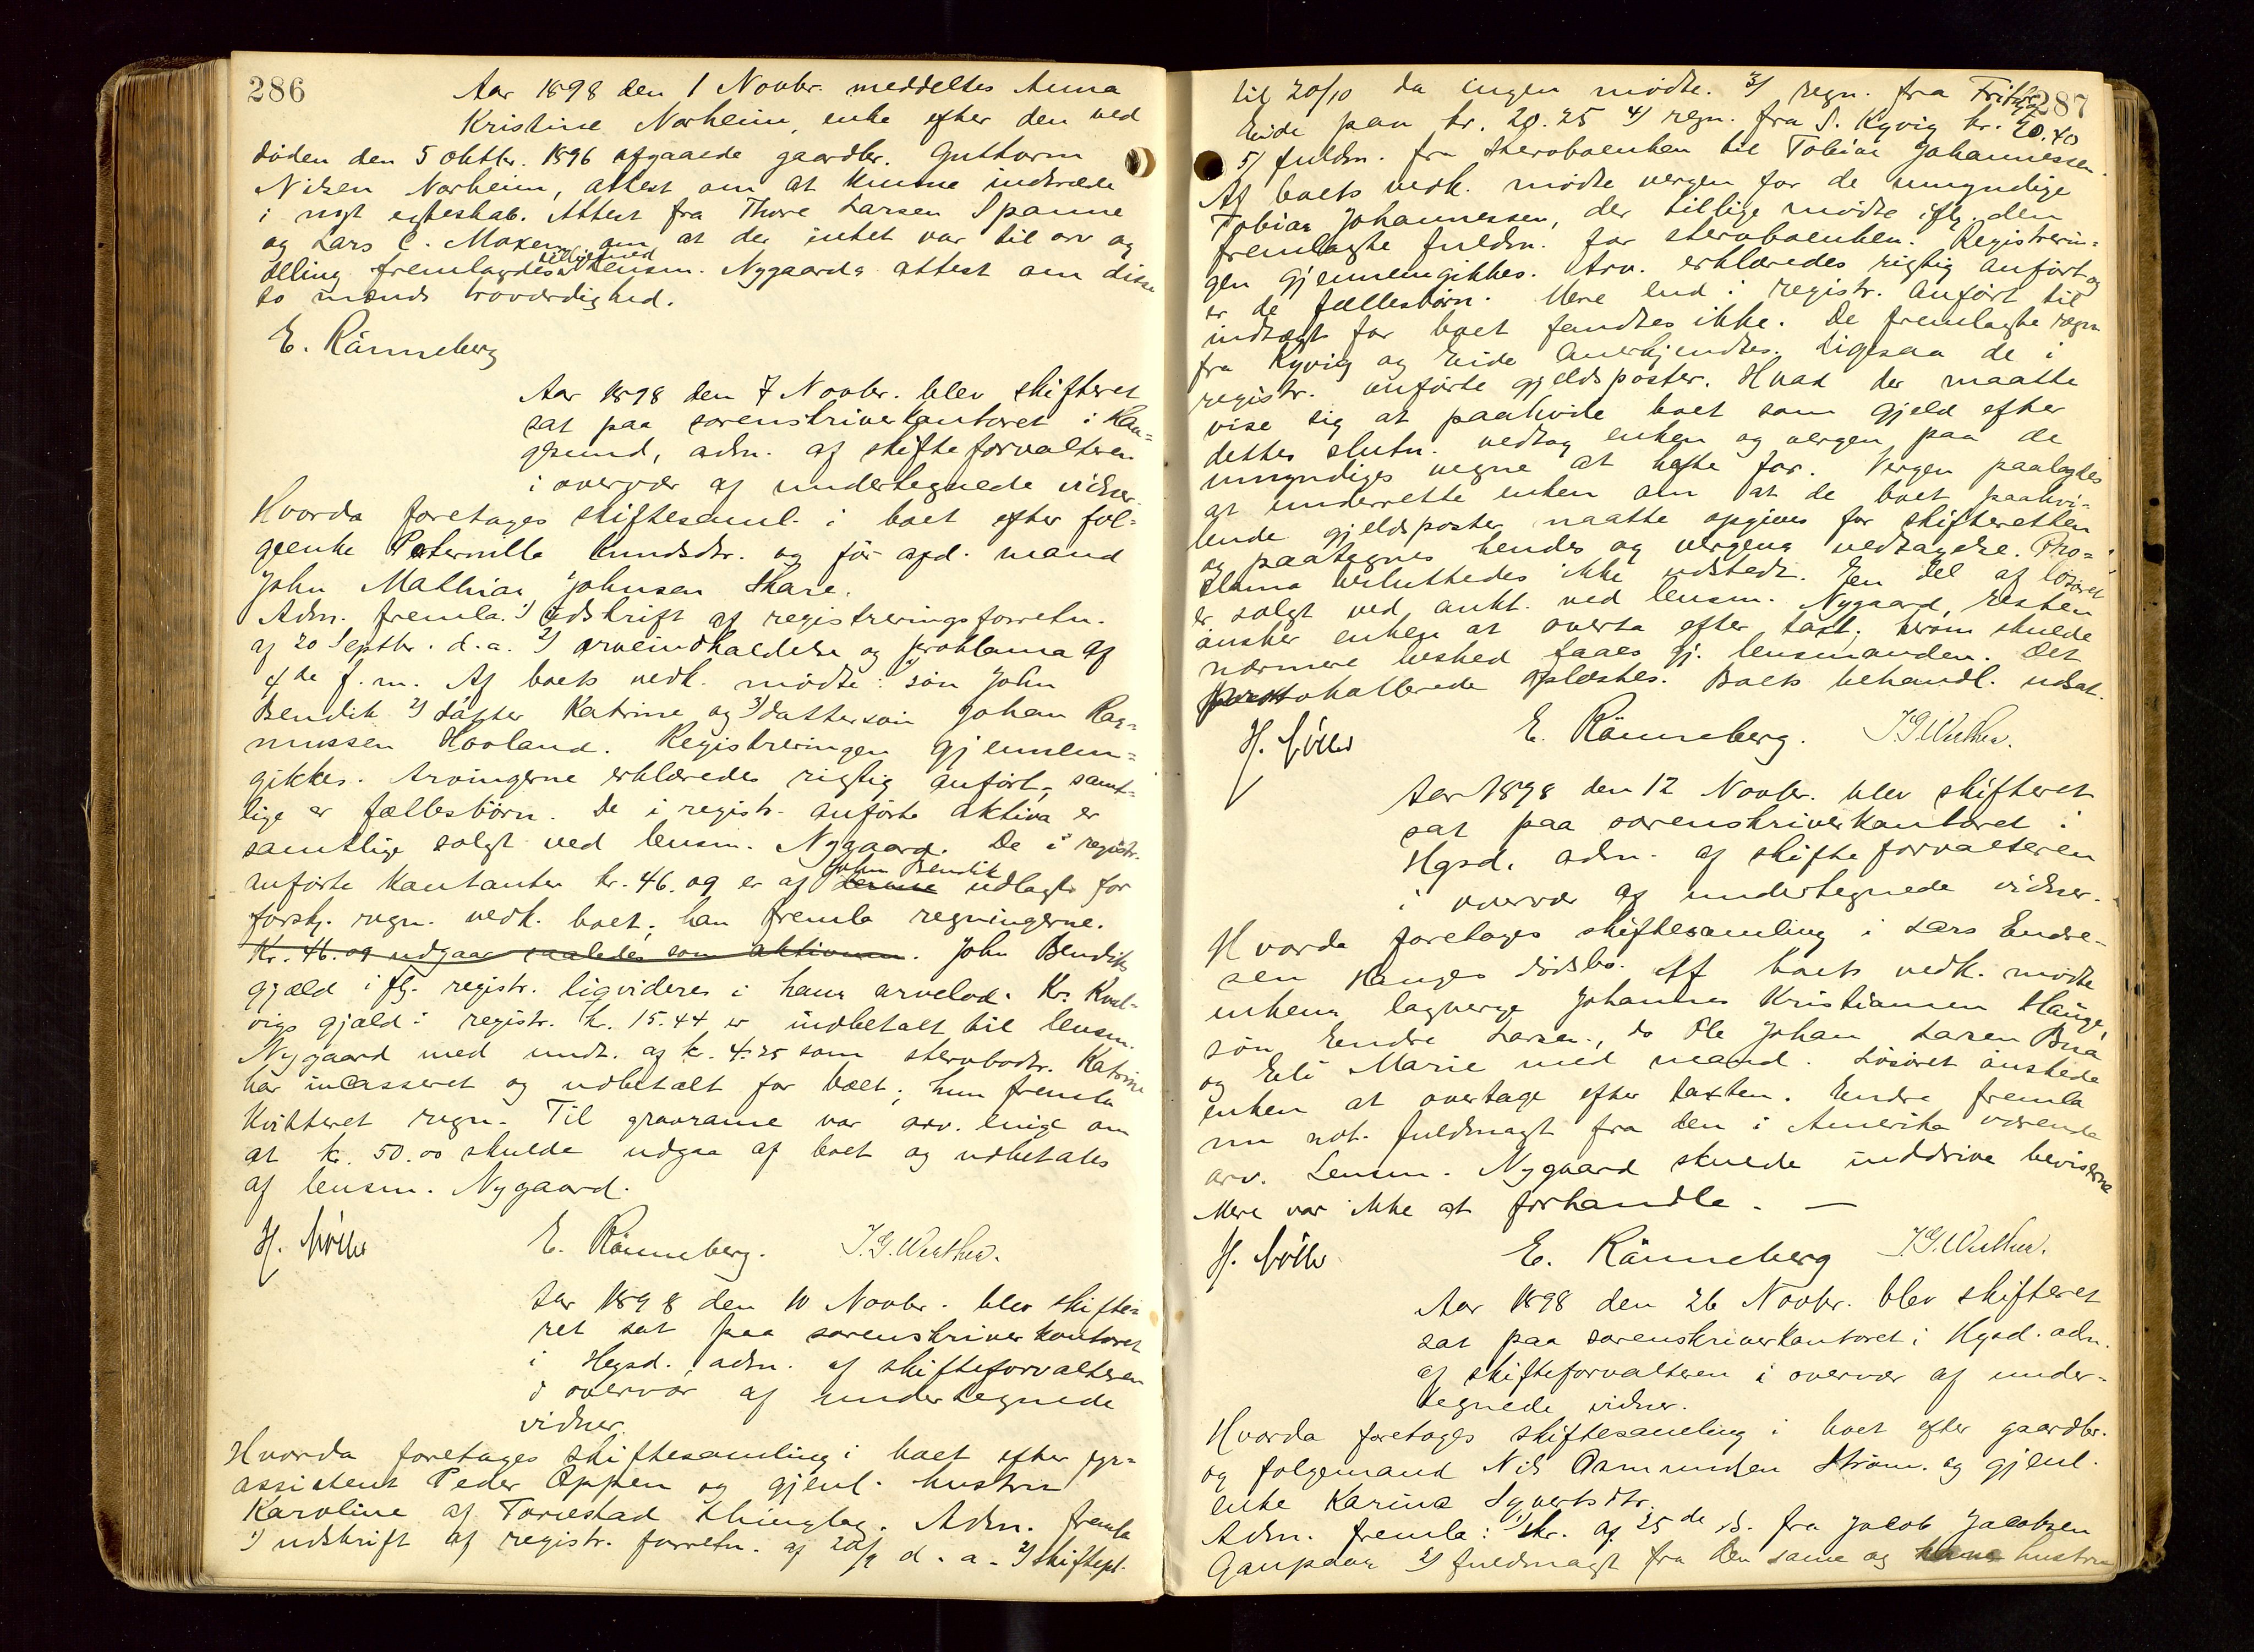 286
Aar 1898 den 1 Novbr. meddeltes Anna
Kristine Norheim, enke efter den ved
döden den 5 oktbr. 1896 afgaaede gaardbr. Guttorm
Nilsen Norheim, attest om at kunne indtræde
i nyt egteskab. Attest fra Thore Larsen Spanne
og Lars C. om at der intet var til arv og
deling fremlagdes tilligemed lensm. Nygaards attest om disse
to mænds troværdighed.
E. Rønneberg
Aar 1898 den 7 Novbr. blev skifteret
sat paa sorenskriverkontoret i Hau=
gesund, adm. af skifteforvalteren
i overvær af undertegnede vidner.
Hvorda foretages skiftesaml. i boet efter föl=
geenke Pernille Knudsdtr. og för afd. mand
John Mathias Johnsen Skare.
Adm. fremla. 1) Udskrift af registreringsforretn.
af 20 Septbr. d.a. 2) arveindkaldelse og proklama af
4de f.m. Af boets vedk. mödte: 1) sön John
Bendik 2) datter Katrine og 3) dattersön Johan Ras=
mussen Hovland. Registreringen gjennem=
gikkes. Arvingerne erklæredes rigtig anfört, samt=
lige er fællesbörn. De i registr. anförte aktiva er
samtlige solgt ved lensm. Nygaard. De i registr.
anförte kontanter kr. 46.09 er af John Bendik udlagt for
forskj. regn. vedk. boet; han fremla regningerne.
Kr. 46.09 udgaar saaledes som aktivum. John Bendiks
gjæld ifg. registr. ligvideres i hans arvelod. Kr. Kval-
vigs gjæld i registr. kr. 15.44 er indbetalt til lensm.
Nygaard med undt. af kr. 4.25 som stervbodtr. Katrine
har incasseret og udbetalt for boet; hun fremla
kvitteret regn. Til gravrame var arv. enige om
at kr. 50.00 skulde udgaa af boet og udbetales
af lensm. Nygaard.
E. Rønneberg. J.G. Werther.
Aar 1898 den 10 Novbr. blev skifte=
ret sat paa sorenskriverkontoret
i Hgsd. adm. af skifteforvalteren
i overvær af undertegnede
vidner.
Hvorda foretages skiftesamling i boet efter fyr=
assistent Peder Oppen og gjenl. hustru
Karoline af Torvestad thinglag. Adm. fremla
1) udskrift af registr. forretn. af 20/9 d.a. 2) skiftepl.
287
til 20/10 da ingen mödte. 3) regn. fra
Eide paa kr. 20.25 4) regn. fra S. Kyvig kr. 20.40
5) fuldm. fra stervboenken til Tobias Johannessen.
Af boets vedk. mödte vergen for de umyndige
Tobias Johannessen, der tillige mödte iflg. den
fremlagte fuldm. for stervboenken. Registrerin=
gen gjennemgikkes. Arv. erklæredes rigtig anfört og
er de fællesbörn. Mere end i registr. anfört til
indtægt for boet fandtes ikke. De fremlagte regn
fra Kyvig og Eide anerkjendtes. Ligesaa de i
registr. anförte gjeldsposter. Hvad der maatte
vise sig at paahvile boet som gjeld efter
dettes slutn. vedtog enken og vergen paa de
umyndiges vegne at hefte for. Vergen paalagdes
at underrette enken om at de boet paahvi-
lende gjeldsposter maatte opgives for skifteretten
og paategnes hendes og vergens vedtagelse. Pro=
klama besluttedes ikke udstedt. En del af lösöret
er solgt ved aukt. ved lensm. Nygaard, resten
önsker enken at overta efter taxt. herom skulde
nærmere besked faaes gj. lensmanden. Det
protokollerede oplæstes. Boets behandl. udsat.
E. Rønneberg. J.G. Werther.
Aar 1898 den 12 Novbr. blev skifteret
sat paa sorenskriverkontoret i
Hgsd. adm. af skifteforvalteren
i overvær af undertegnede vidner.
Hvorda foretages skiftesamling i Lars Endre-
sen Hauges dödsbo. Af boets vedk. mödte
enkens lagverge Johannes Kristiansen Hauge,
sön Endre Larsen, do Ole Johan Larsen
og Eli Marie med mand. Lösöret önskede
enken at overtage efter taxten. Endre fremla
nu not. fuldmagt fra den i Amerika værende
arv. Lensm. Nygaard skulde inddrive beviserne
Mere var ikke at forhandle. —
E. Rønneberg J.G. Werther.
Aar 1898 den 26 Novbr. blev skifteret
sat paa sorenskriverkontoret i Hgsd. adm.
af skifteforvalteren i overvær af under=
tegnede vidner.
Hvorda foretages skiftesamling i boet efter gaardbr.
og folgemand Nils Osmundsen Ström. og gjenl.
enke Karina Syvertsdtr.
Adm. fremla: 1) skr. af 25de ds. fra Jacob Jacobsen
Gaupaas 2) fuldmagt fra den same og hustru